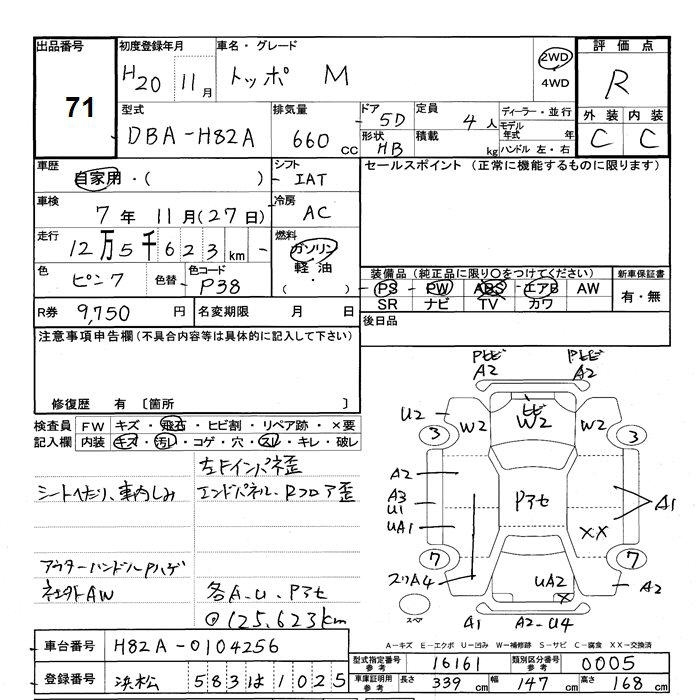 出品番号 71
初度登録年月 H20 11月
車名・グレード トッポ M
2WD
4WD
評価点 R
型式 DBA-H82A
排気量 660 CC
ドア 5D
形状 HB
定員 4人
積載 kg
ディーラー・並行
モデル年式 年
ハンドル 左・右
外装 C
内装 C
車歴 自家用・( )
シフト IAT
セールスポイント (正常に機能するものに限ります)
車検 7年 11月(27日)
冷房 AC
走行 12万5千623km
燃料 ガソリン
軽油
( ・ )
色 ピンク
色替
色コード P38
装備品(純正品に限り○をつけてください)
PS PW ABS エアB AW
SR ナビ TV カワ
新車保証書
有・無
R券 9,750円
名変期限 月 日
後日品
注意事項申告欄(不具合内容等は具体的に記入して下さい)
修復歴 有 〔箇所 〕
検査員記入欄
FW キズ・飛石・ヒビ割・リペア跡・×要
内装 キズ・汚レ・コゲ・穴・スレ・キレ・破レ
左Fインパネ歪
シートへたり、車内しみ
エンドパネル、Rフロア歪
アウターハンドルPハゲ
社外AW
各A.U.Pアセ
◎125,623km
PトビA2 PトビA2
U2 W2 W2 W2
3 3
A2
A3
U1
UA1
Pアセ
A1
XX
7 7
スリA4
UA2
X
A2
スペア
A1 A2-U4
A−キズ E−エクボ U−凹み W−補修跡 S−サビ C−腐食 XX−交換済
車台番号 H82A-0104256
登録番号 浜松 583は1025
型式指定番号参考 16161
類別区分番号参考 0005
車庫証明用参考 長さ 339cm 幅 147cm 高さ 168cm